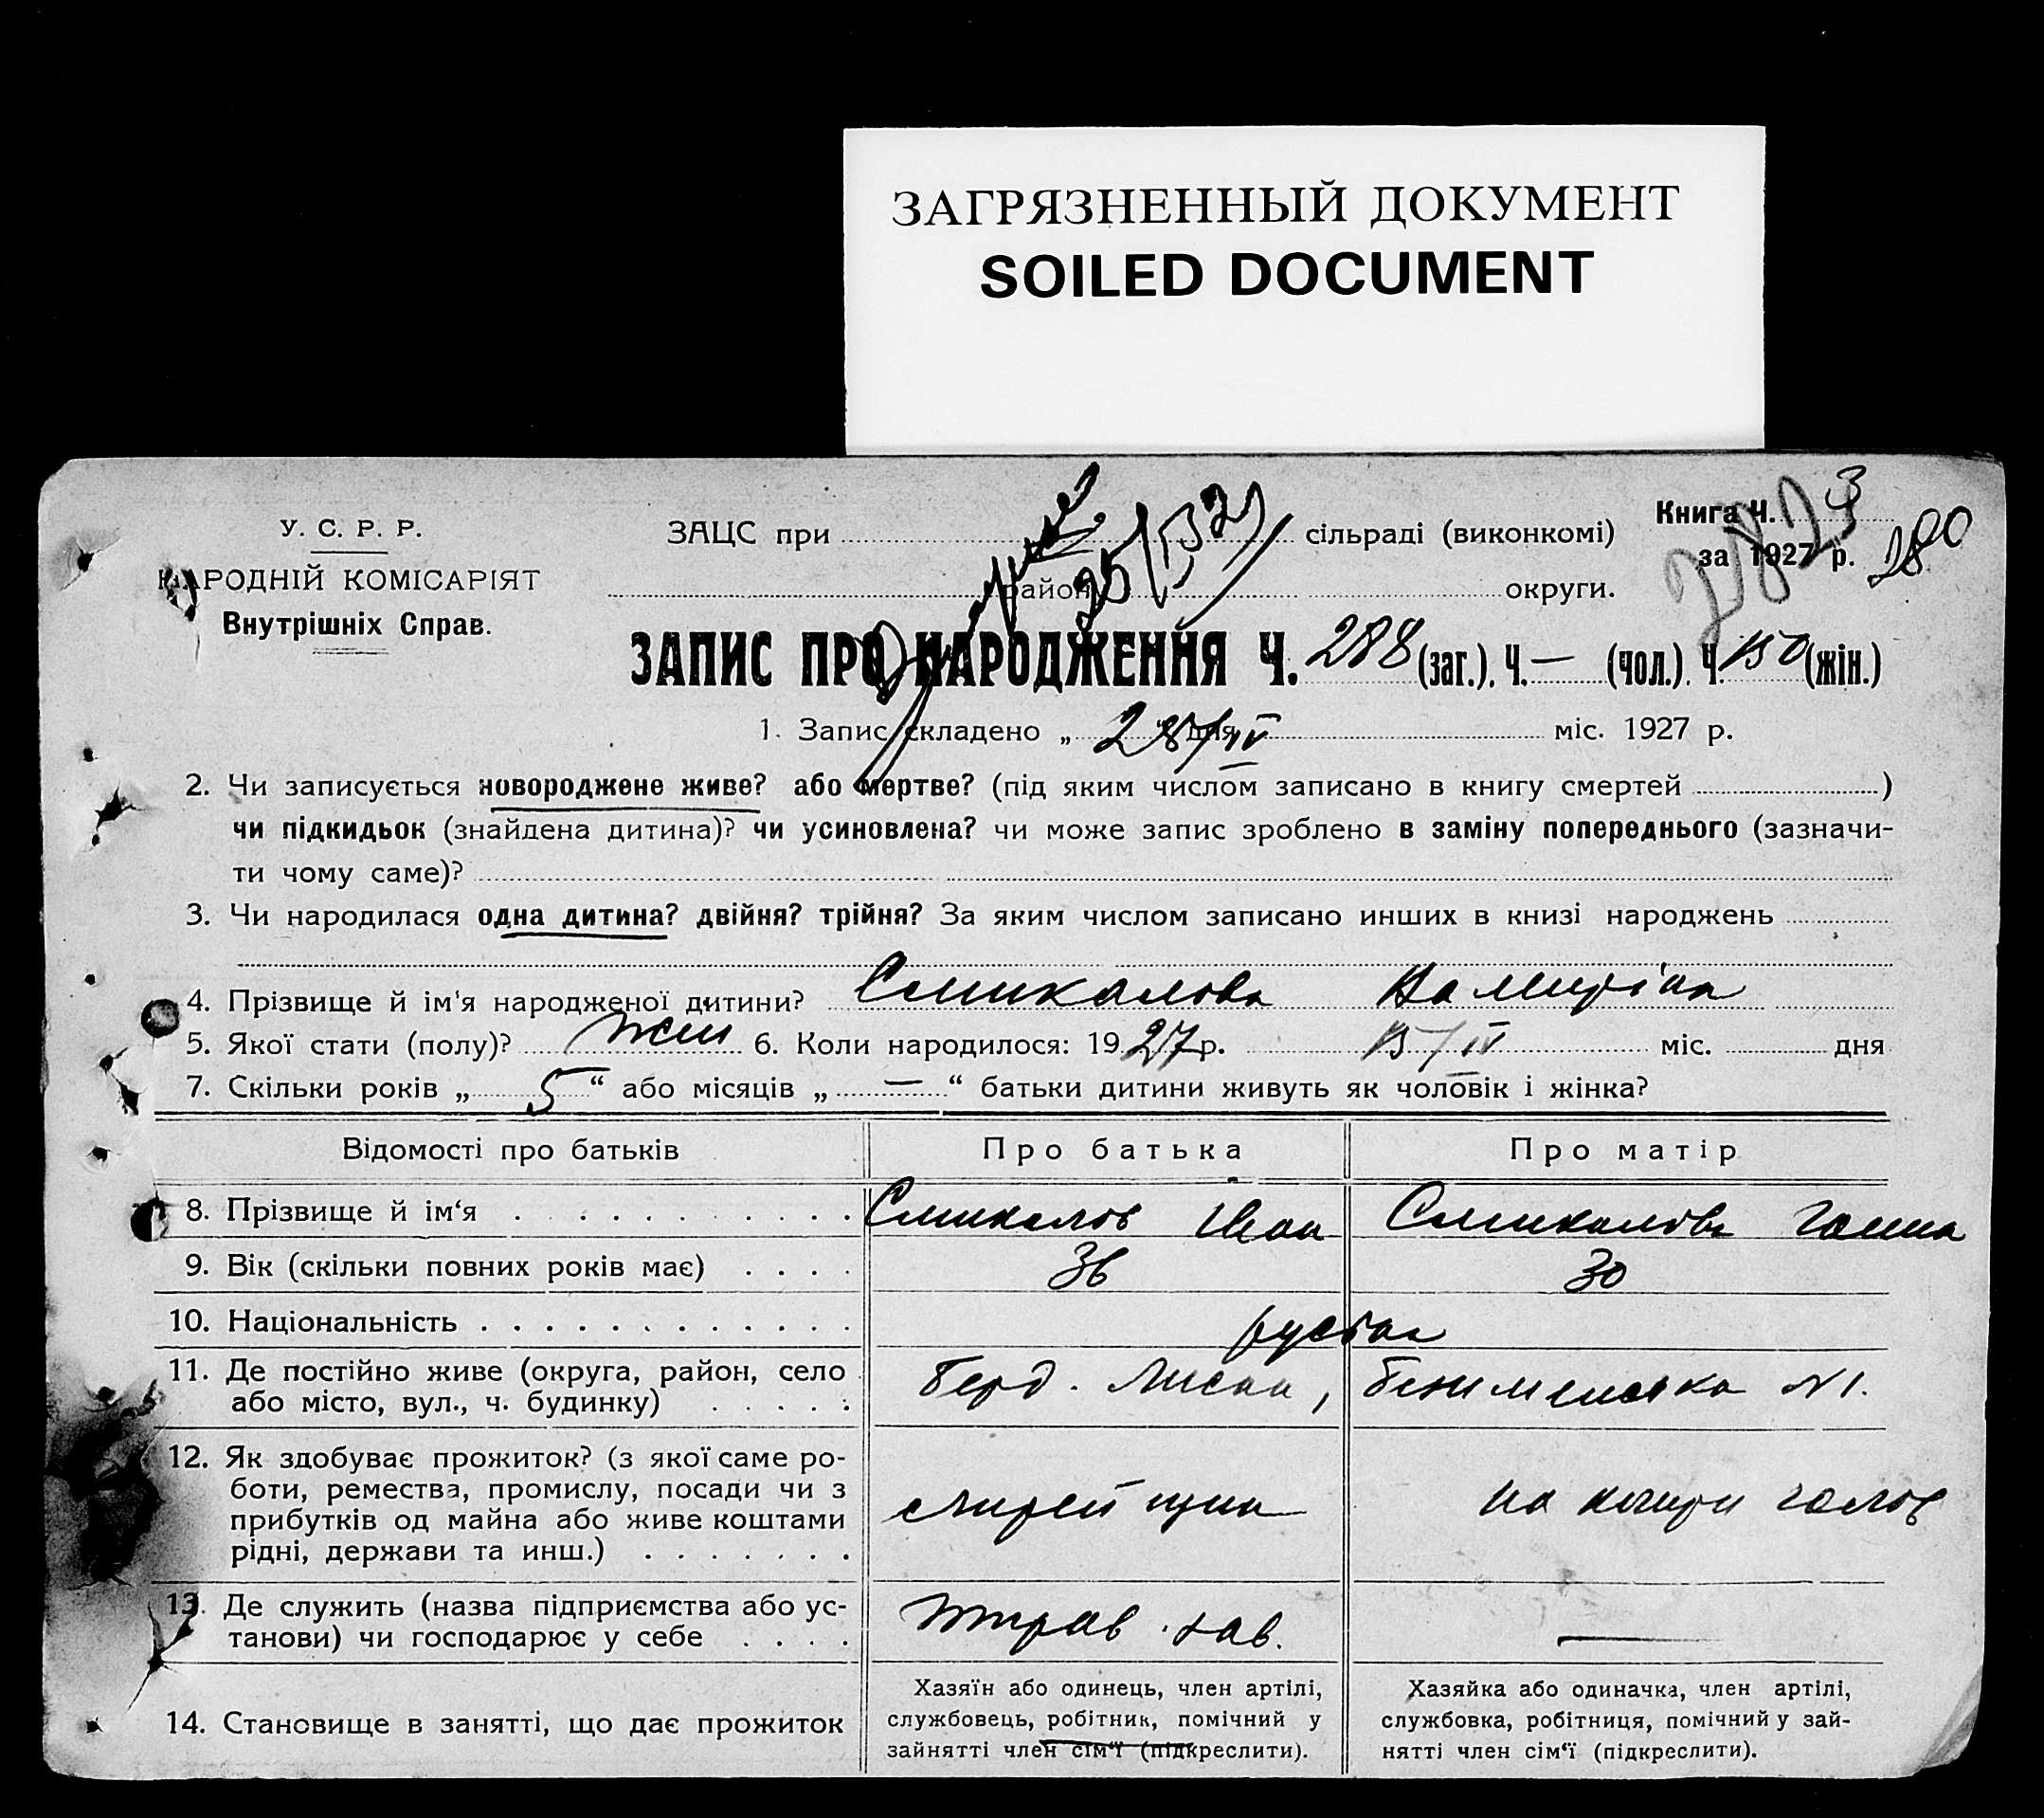 ЗАГРЯЗНЕННЫЙ ДОКУМЕНТ
SOILED DOCUMENT
У. С. Р. Р.
НАРОДНІЙ КОМІСАРІЯТ
Внутрішніх Справ.
ЗАЦС при сільраді (виконкомі)
район округи.
Книга Ч. 3
за 1927 р. 280
ЗАПИС ПРО НАРОДЖЕННЯ Ч. 288 (заг.). Ч. — (чол.). Ч. 150 (жін.)
1. Запис складено „ 28/IV дня міс. 1927 р.
2. Чи записується новороджене живе? або мертве? (під яким числом записано в книгу смертей )
чи підкидьок (знайдена дитина)? чи усиновлена? чи може запис зроблено в заміну попереднього (зазначи-
ти чому саме)?
3. Чи народилася одна дитина? двійня? трійня? За яким числом записано инших в книзі народжень
4. Прізвище й ім'я народженої дитини? Смикалова
5. Якої стати (полу)? жін 6. Коли народилося: 1927 р. 15/IV міс. дня
7. Скільки років „ 5 “ або місяців „ — “ батьки дитини живуть як чоловік і жінка?
Відомості про батьків Про батька Про матір
8. Прізвище й ім‘я Смикалов Іван Смикалова Ганна
9. Вік (скільки повних років має) 36 30
10. Національність
11. Де постійно живе (округа, район, село
або місто, вул., ч. будинку)
Берд. Лиски, N 1.
12. Як здобуває прожиток? (з якої саме ро-
боти, ремества, промислу, посади чи з
прибутків од майна або живе коштами
рідні, держави та инш.)
на кошти
13. Де служить (назва підприємства або ус-
танови) чи господарює у себе
зав. —
14. Становище в занятті, що дає прожиток
Хазяїн або одинець, член артілі,
службовець, робітник, помічний у
зайнятті член сім‘ї (підкреслити).
Хазяйка або одиначка, член артілі,
службовка, робітниця, помічний у зай-
нятті член сім‘ї (підкреслити).